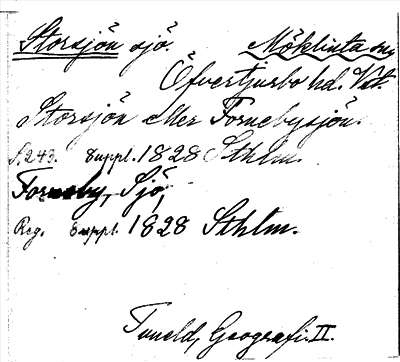 Storsjön sjö. Möklinta sn,
Öfvertjurbo hd. Vstm.
Storsjön eller Fornebysjön.
S. 243. Suppl. 1828 Sthlm.
Forneby, Sjö,
Reg. Suppl. 1828 Sthlm.
Tuneld, Geografi. II.